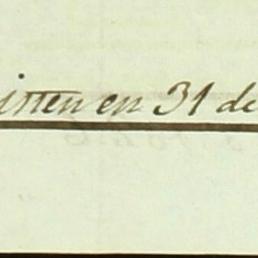 isten en 31 de